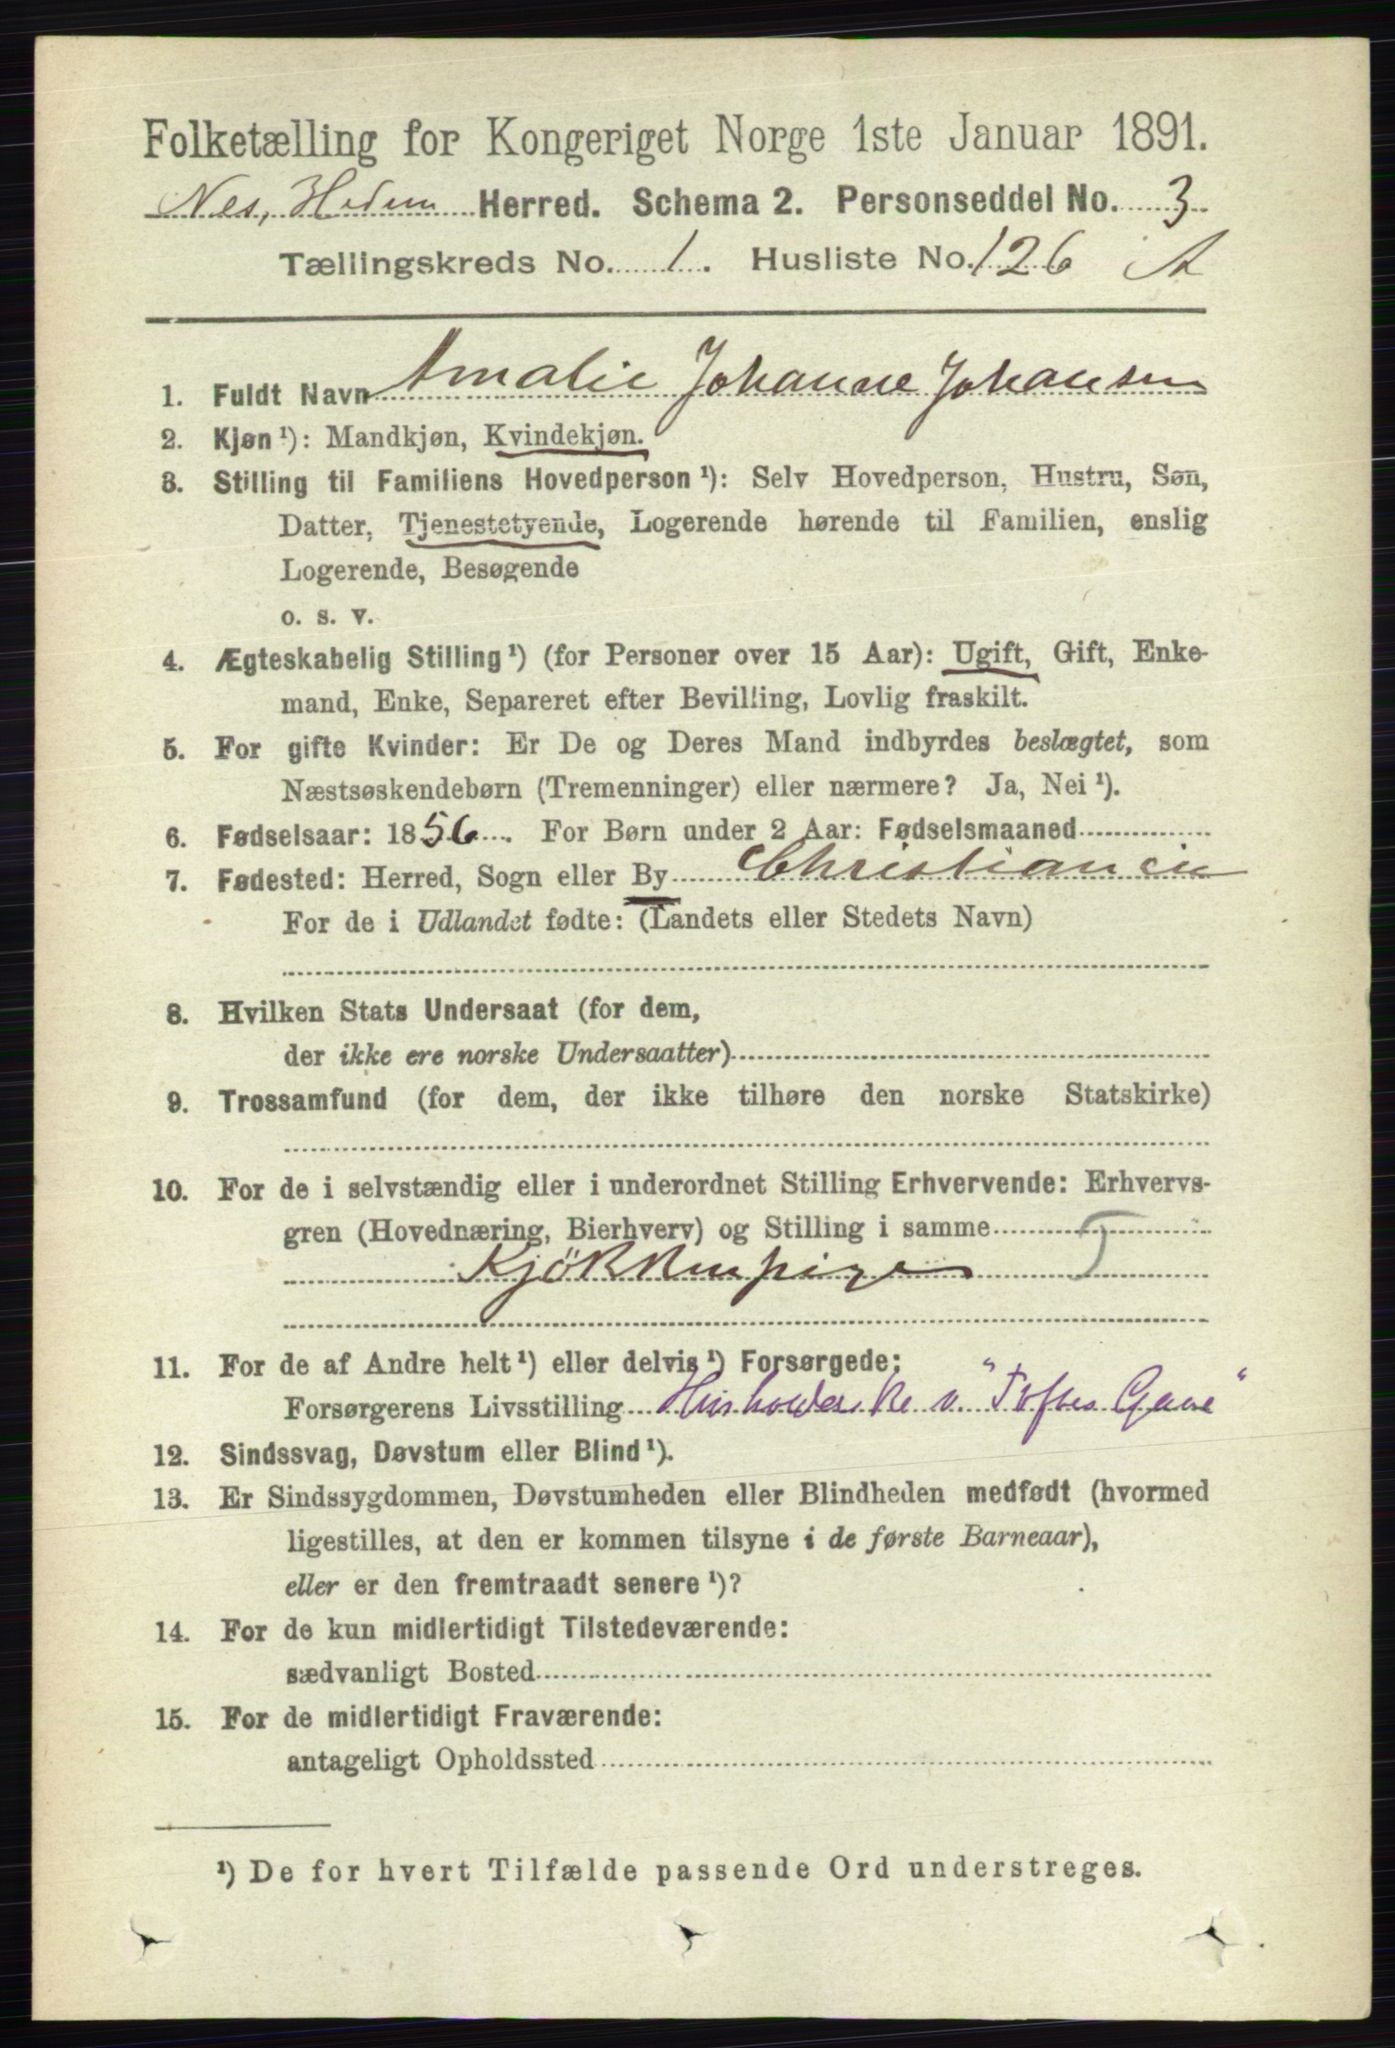 Folketælling for Kongeriget Norge 1ste Januar 1891.
Nes, Hedem Herred. Schema 2. Personseddel No. 3
Tællingskreds No. 1. Husliste No. 126 A
1. Fuldt Navn Amalie Johanne Johansen
2. Kjøn¹): Mandkjøn, Kvindekjøn.
3. Stilling til Familiens Hovedperson¹): Selv Hovedperson, Hustru, Søn,
Datter, Tjenestetyende, Logerende hørende til Familien, enslig
Logerende, Besøgende
o. s. v.
4. Ægteskabelig Stilling¹) (for Personer over 15 Aar): Ugift, Gift, Enke-
mand, Enke, Separeret efter Bevilling, Lovlig fraskilt.
5. For gifte Kvinder: Er De og Deres Mand indbyrdes beslægtet, som
Næstsøskendebørn (Tremenninger) eller nærmere? Ja, Nei¹).
6. Fødselsaar: 1856. For Børn under 2 Aar: Fødselsmaaned
7. Fødested: Herred, Sogn eller By Christiania
For de i Udlandet fødte: (Landets eller Stedets Navn)
8. Hvilken Stats Undersaat (for dem,
der ikke ere norske Undersaatter)
9. Trossamfund (for dem, der ikke tilhøre den norske Statskirke)
10. For de i selvstændig eller i underordnet Stilling Erhvervende: Erhvervs-
gren (Hovednæring, Bierhverv) og Stilling i samme
Kjökkenpige T
11. For de af Andre helt¹) eller delvis¹) Forsørgede:
Forsørgerens Livsstilling Husholderske v. "Toftes Gave"
12. Sindssvag, Døvstum eller Blind¹).
13. Er Sindssygdommen, Døvstumheden eller Blindheden medfødt (hvormed
ligestilles, at den er kommen tilsyne i de første Barneaar),
eller er den fremtraadt senere¹)?
14. For de kun midlertidigt Tilstedeværende:
sædvanligt Bosted
15. For de midlertidigt Fraværende:
antageligt Opholdssted
¹) De for hvert Tilfælde passende Ord understreges.